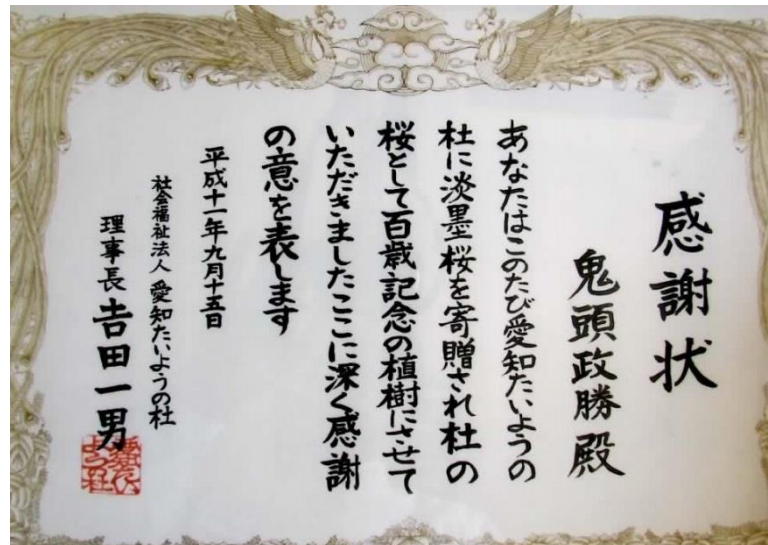 感謝状
鬼頭政勝殿
あなたはこのたび愛知たいようの
杜に淡墨桜を寄贈され杜の
桜として百歳記念の植樹にさせて
いただきましたここに深く感謝
の意を表します
平成十一年九月十五日
社会福祉法人 愛知たいようの杜
理事長 吉田一男